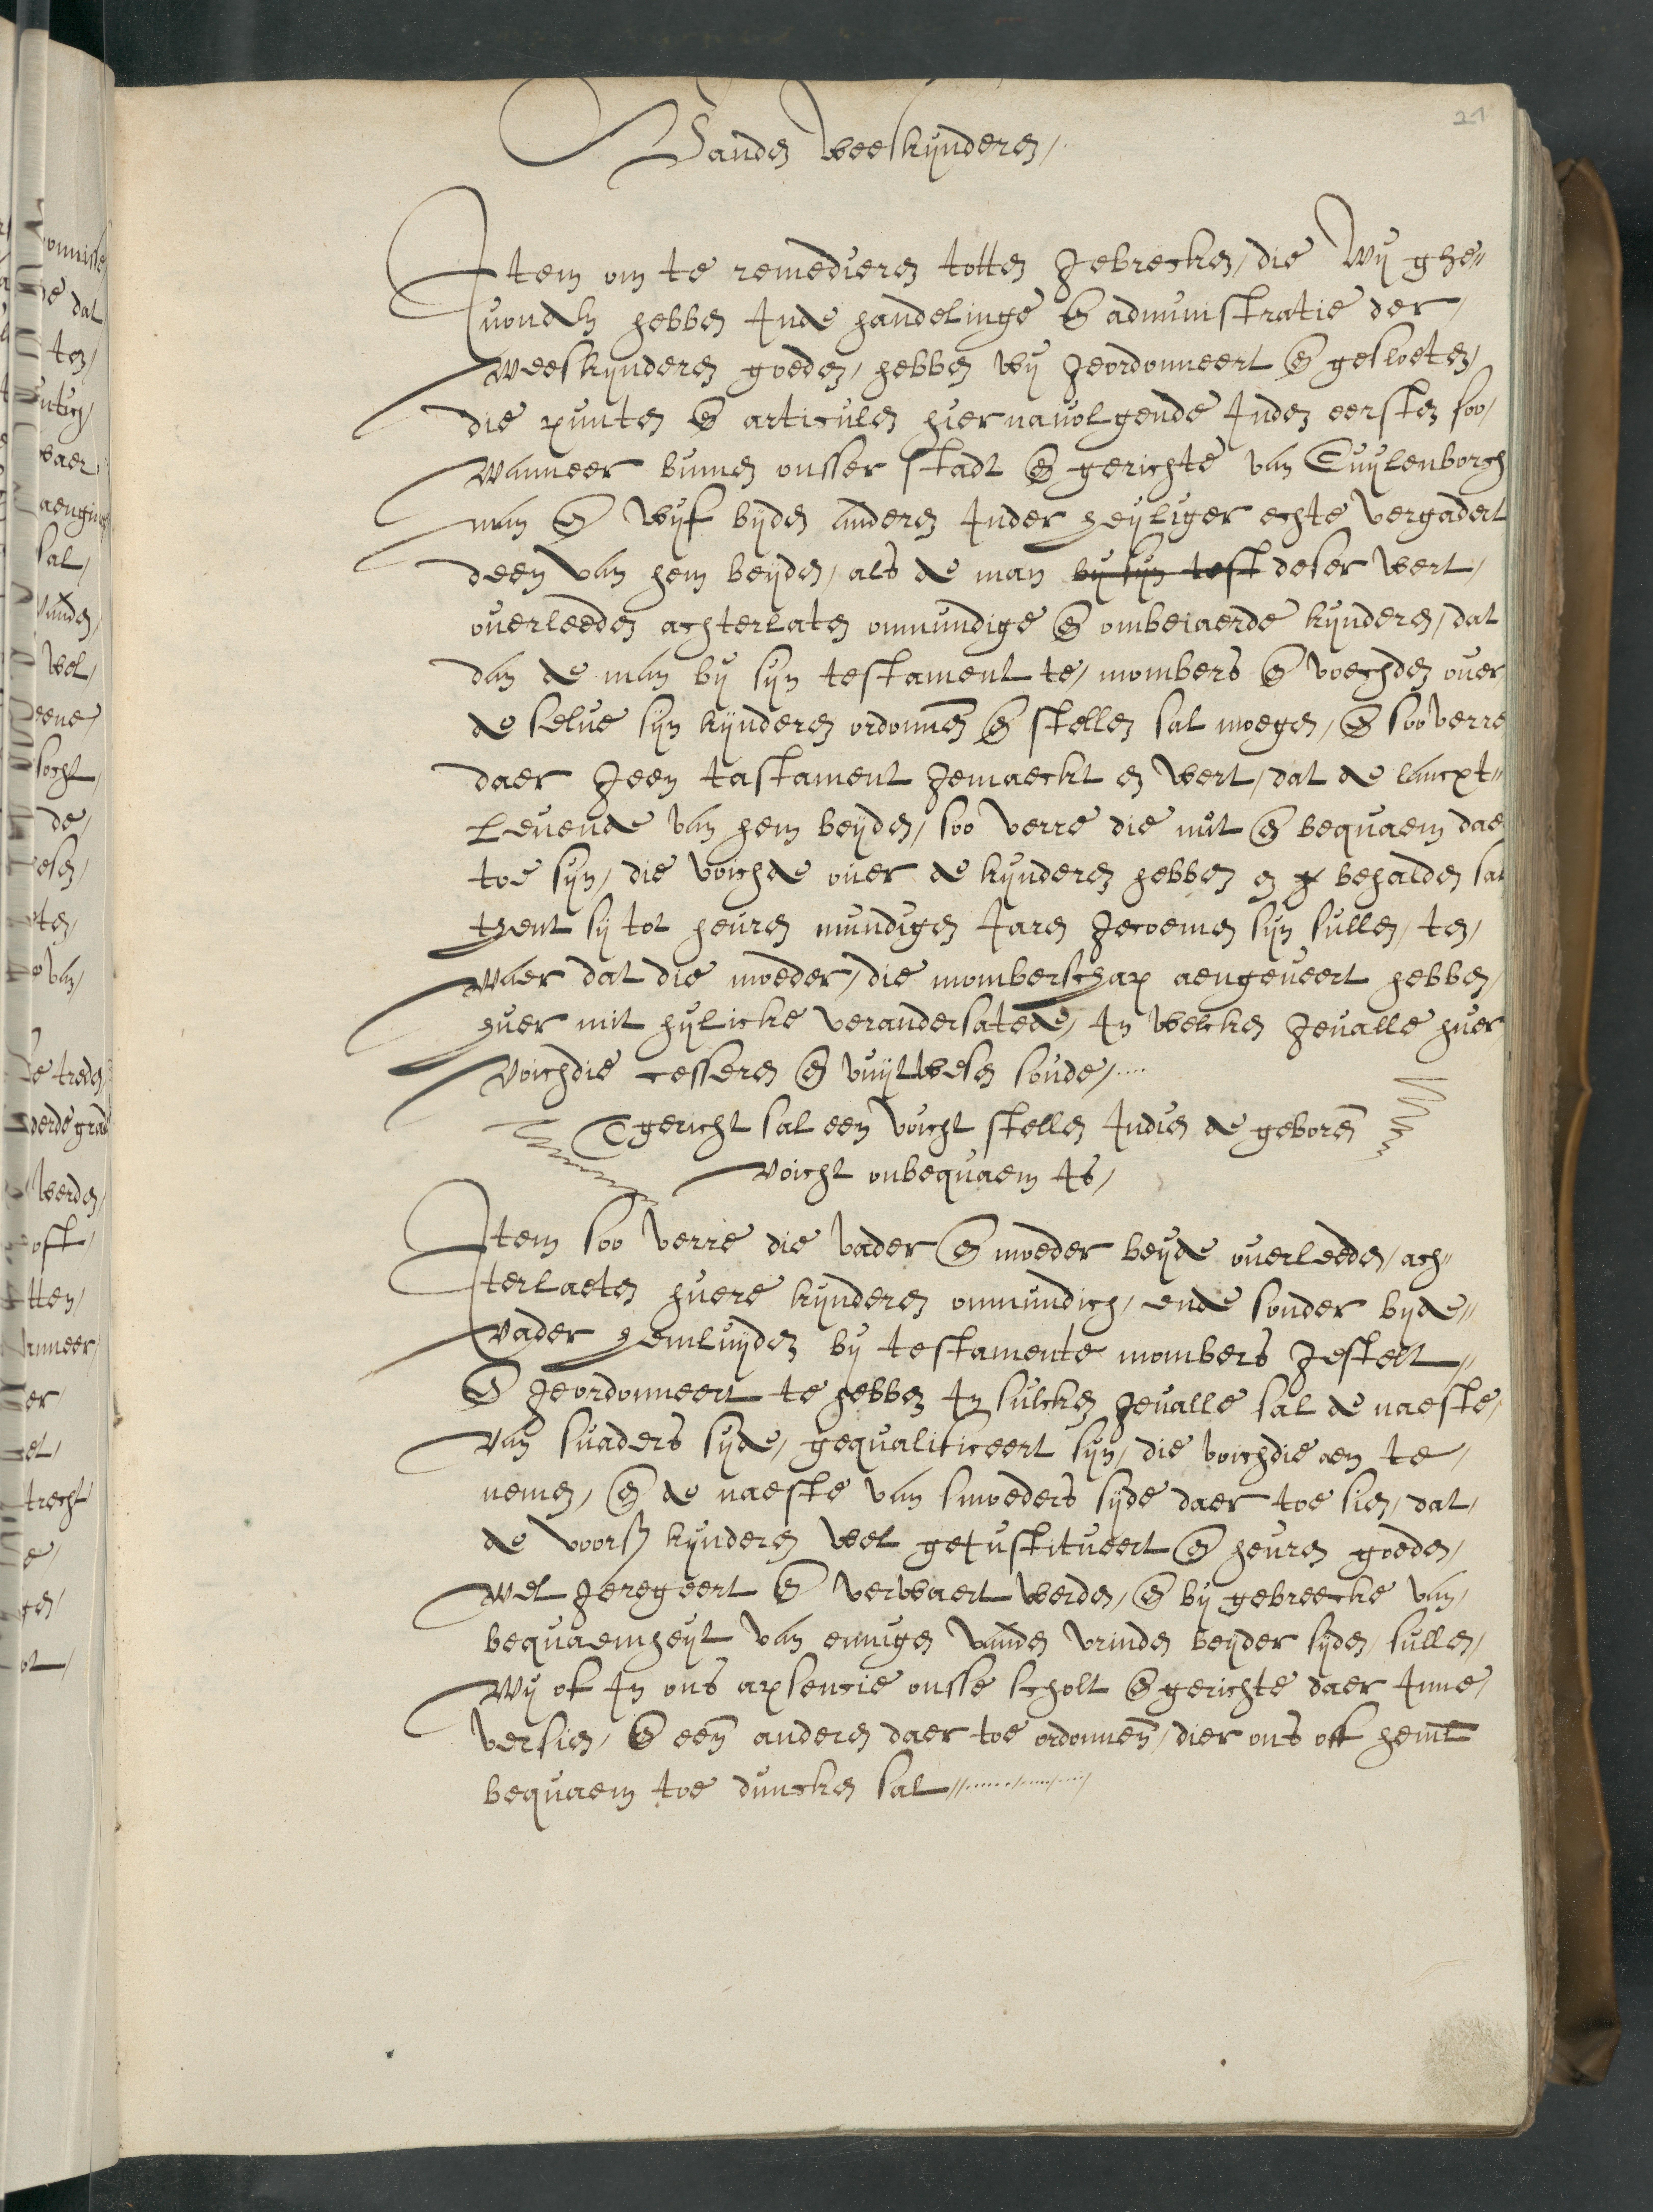 21
Vanden weeskijnderen,
Item om te remedieren totten gebrecken, die wij ghe„
vonden hebben inde handelinge en̄ administratie der,
weeskijnderen goeden, hebben wij geordonneert en̄ gesloeten,
die punten en̄ articulen hier navolgende Inden eersten soo,
wanneer binnen onsser stadt en̄ gerichte van Cuylenborch
man en̄ wijf bijden anderen Inder heyliger echte vergadert
deen van hem beyden, als de man bij sijn test deser wert,
overleeden achterlaten onmundige en̄ ombeiaerde kijnderen, dat
dan de man bij sijn testament te, mombers en̄ voechden over
de selve sijn kijnderen ordonnen̄ en̄ stellen sal moegen, en̄ soo verre
daer geen tastament gemaeckt en wert, dat de lancxt„
levende van hem beyden, soo verre die nut en̄ bequaem dae
toe sijn, die voichde over de kijnderen hebben en g behalden sal
tzent sij tot heuren mundigen Jaren gecoemen sijn sullen, ten,
waer dat die moeder, die momberschap aengeveert hebben,
huer mit hylicke verandersatede, In welcken gevalle huer
voichdie cesseren en̄ vuijtwesen soude,....
Tgericht sal een voicht stellen Indien de geboren̄
voicht onbequaem Is,
Item soo verre die vader en̄ moeder beyde overleeden, ach„
terlaeten huere kijnderen onmundich, ende sonder bijde„
vader hemluyden bij testamente mombers gestelt„
en̄ geordonneert te hebben In sulcken gevalle sal de naeste,
van svaders sijde, gequalificeert sijn, die voichdie aen te,
nemen, en̄ de naeste van smoeders sijde daer toe sien, dat,
de voorß kijnderen wel geinstitueert en̄ heuren goeden,
wel geregeert en̄ verwaert werden, en̄ bij gebreecke van,
bequaemheyt van ennigen vanden vrinden beyder sijden, sullen,
wij of In ons apsencie onsse scholt en̄ gerichte daer Inne,
versien, en̄ een̄ anderen daer toe ordonnen̄, dier ons off heml̄
bequaem toe duncken sal„..........